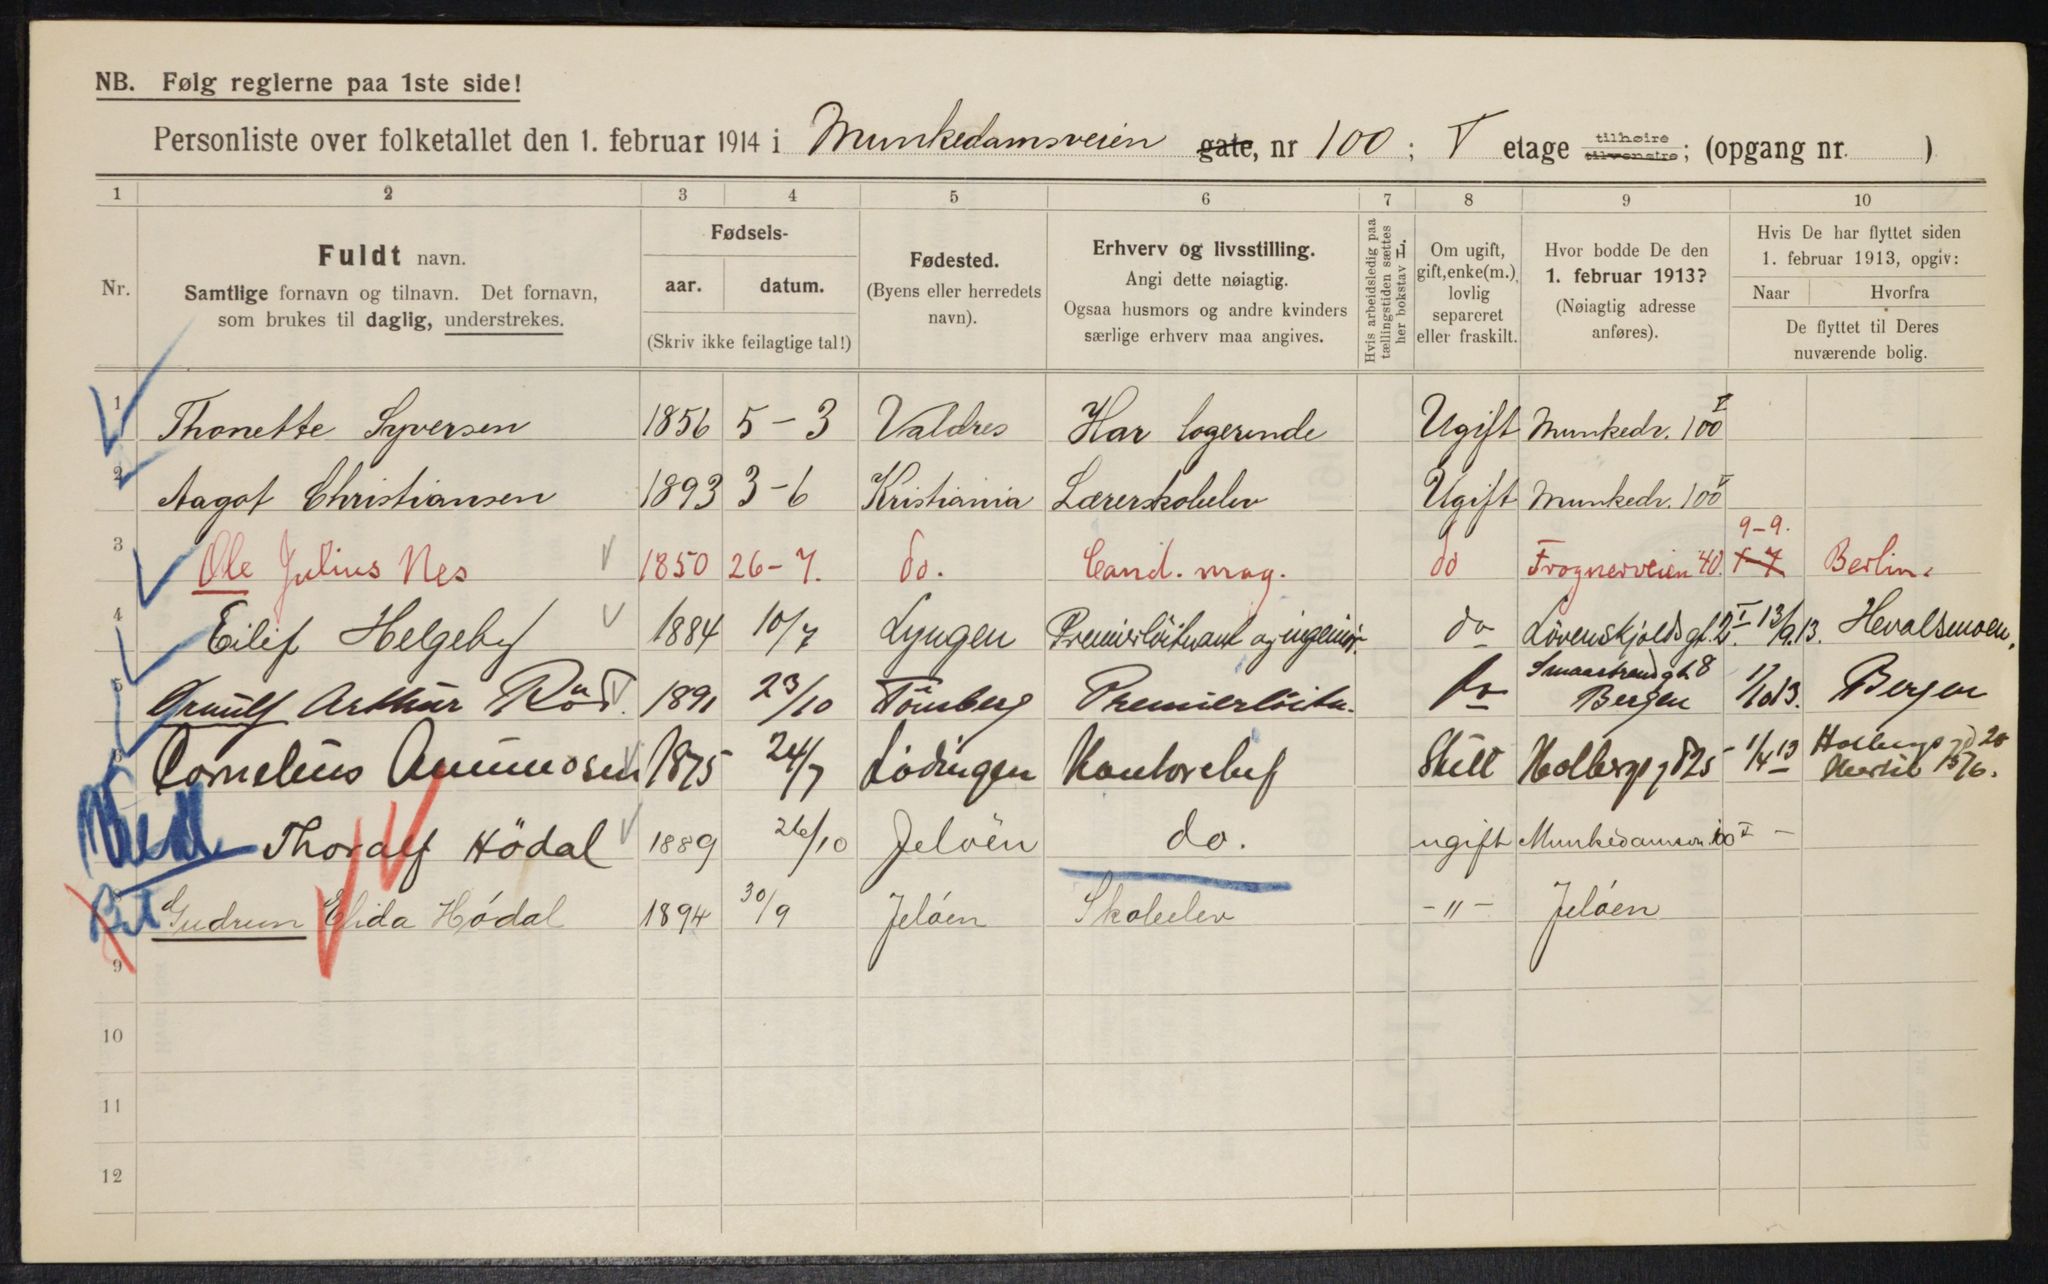 NB. Følg reglerne paa 1ste side!
Personliste over folketallet den 1. februar 1914 i Munkedamsveien gate, nr 100; V etage tilhøire tilvenstre; (opgang nr. )
1 2 3 4 5 6 7 8 9 10
Nr.
Fuldt navn.
Samtlige fornavn og tilnavn. Det fornavn,
som brukes til daglig, understrekes.
Fødsels-
aar. datum.
(Skriv ikke feilagtige tal!)
Fødested.
(Byens eller herredets
navn).
Erhverv og livsstilling.
Angi dette nøiagtig.
Ogsaa husmors og andre kvinders
særlige erhverv maa angives.
Hvis arbeidsledig paa
tællingstiden sættes
her bokstav L
Om ugift,
gift, enke(m.),
lovlig
separeret
eller fraskilt.
Hvor bodde De den
1. februar 1913?
(Nøiagtig adresse
anføres).
Hvis De har flyttet siden
1. februar 1913, opgiv:
Naar Hvorfra
De flyttet til Deres
nuværende bolig.
1 Thonette Syversen 1856 5-3 Valdres Har logerende Ugift Munkedv. 100 V
2 Aagot Christiansen 1893 3-6 Kristiania Lærerskoleelev Ugift Munkedv. 100 V
9-9.
3 Ole Julius Nes 1850 26-7. do. Cand. mag. do Frognerveien 40. 1-7 Berlin.
4 Eilif Helgeby 1884 10/7 Lyngen Premierløitnant og ingeniør. do Løvenskjolds gt. 2 I 13/9.13. Hevalsmoen.
5 Arthur Röd. 1891 23/10 Tönsberg Premierløitn. do Smaastrandgt. 8 Bergen 1/10 13. Bergen
6 Cornelius Ammundsen 1875 24/7 Lödingen Kontorchef Skilt Holbergs gd 25 1/4 13
Thoralf Hödal 1889 26/10 Jelöen do. ugift Munkedamsvn. 100 V -
Gudrun Elida Hódal 1894 30/9 Jelóen Skoleelev -"- Jelóen
9
10
11
12